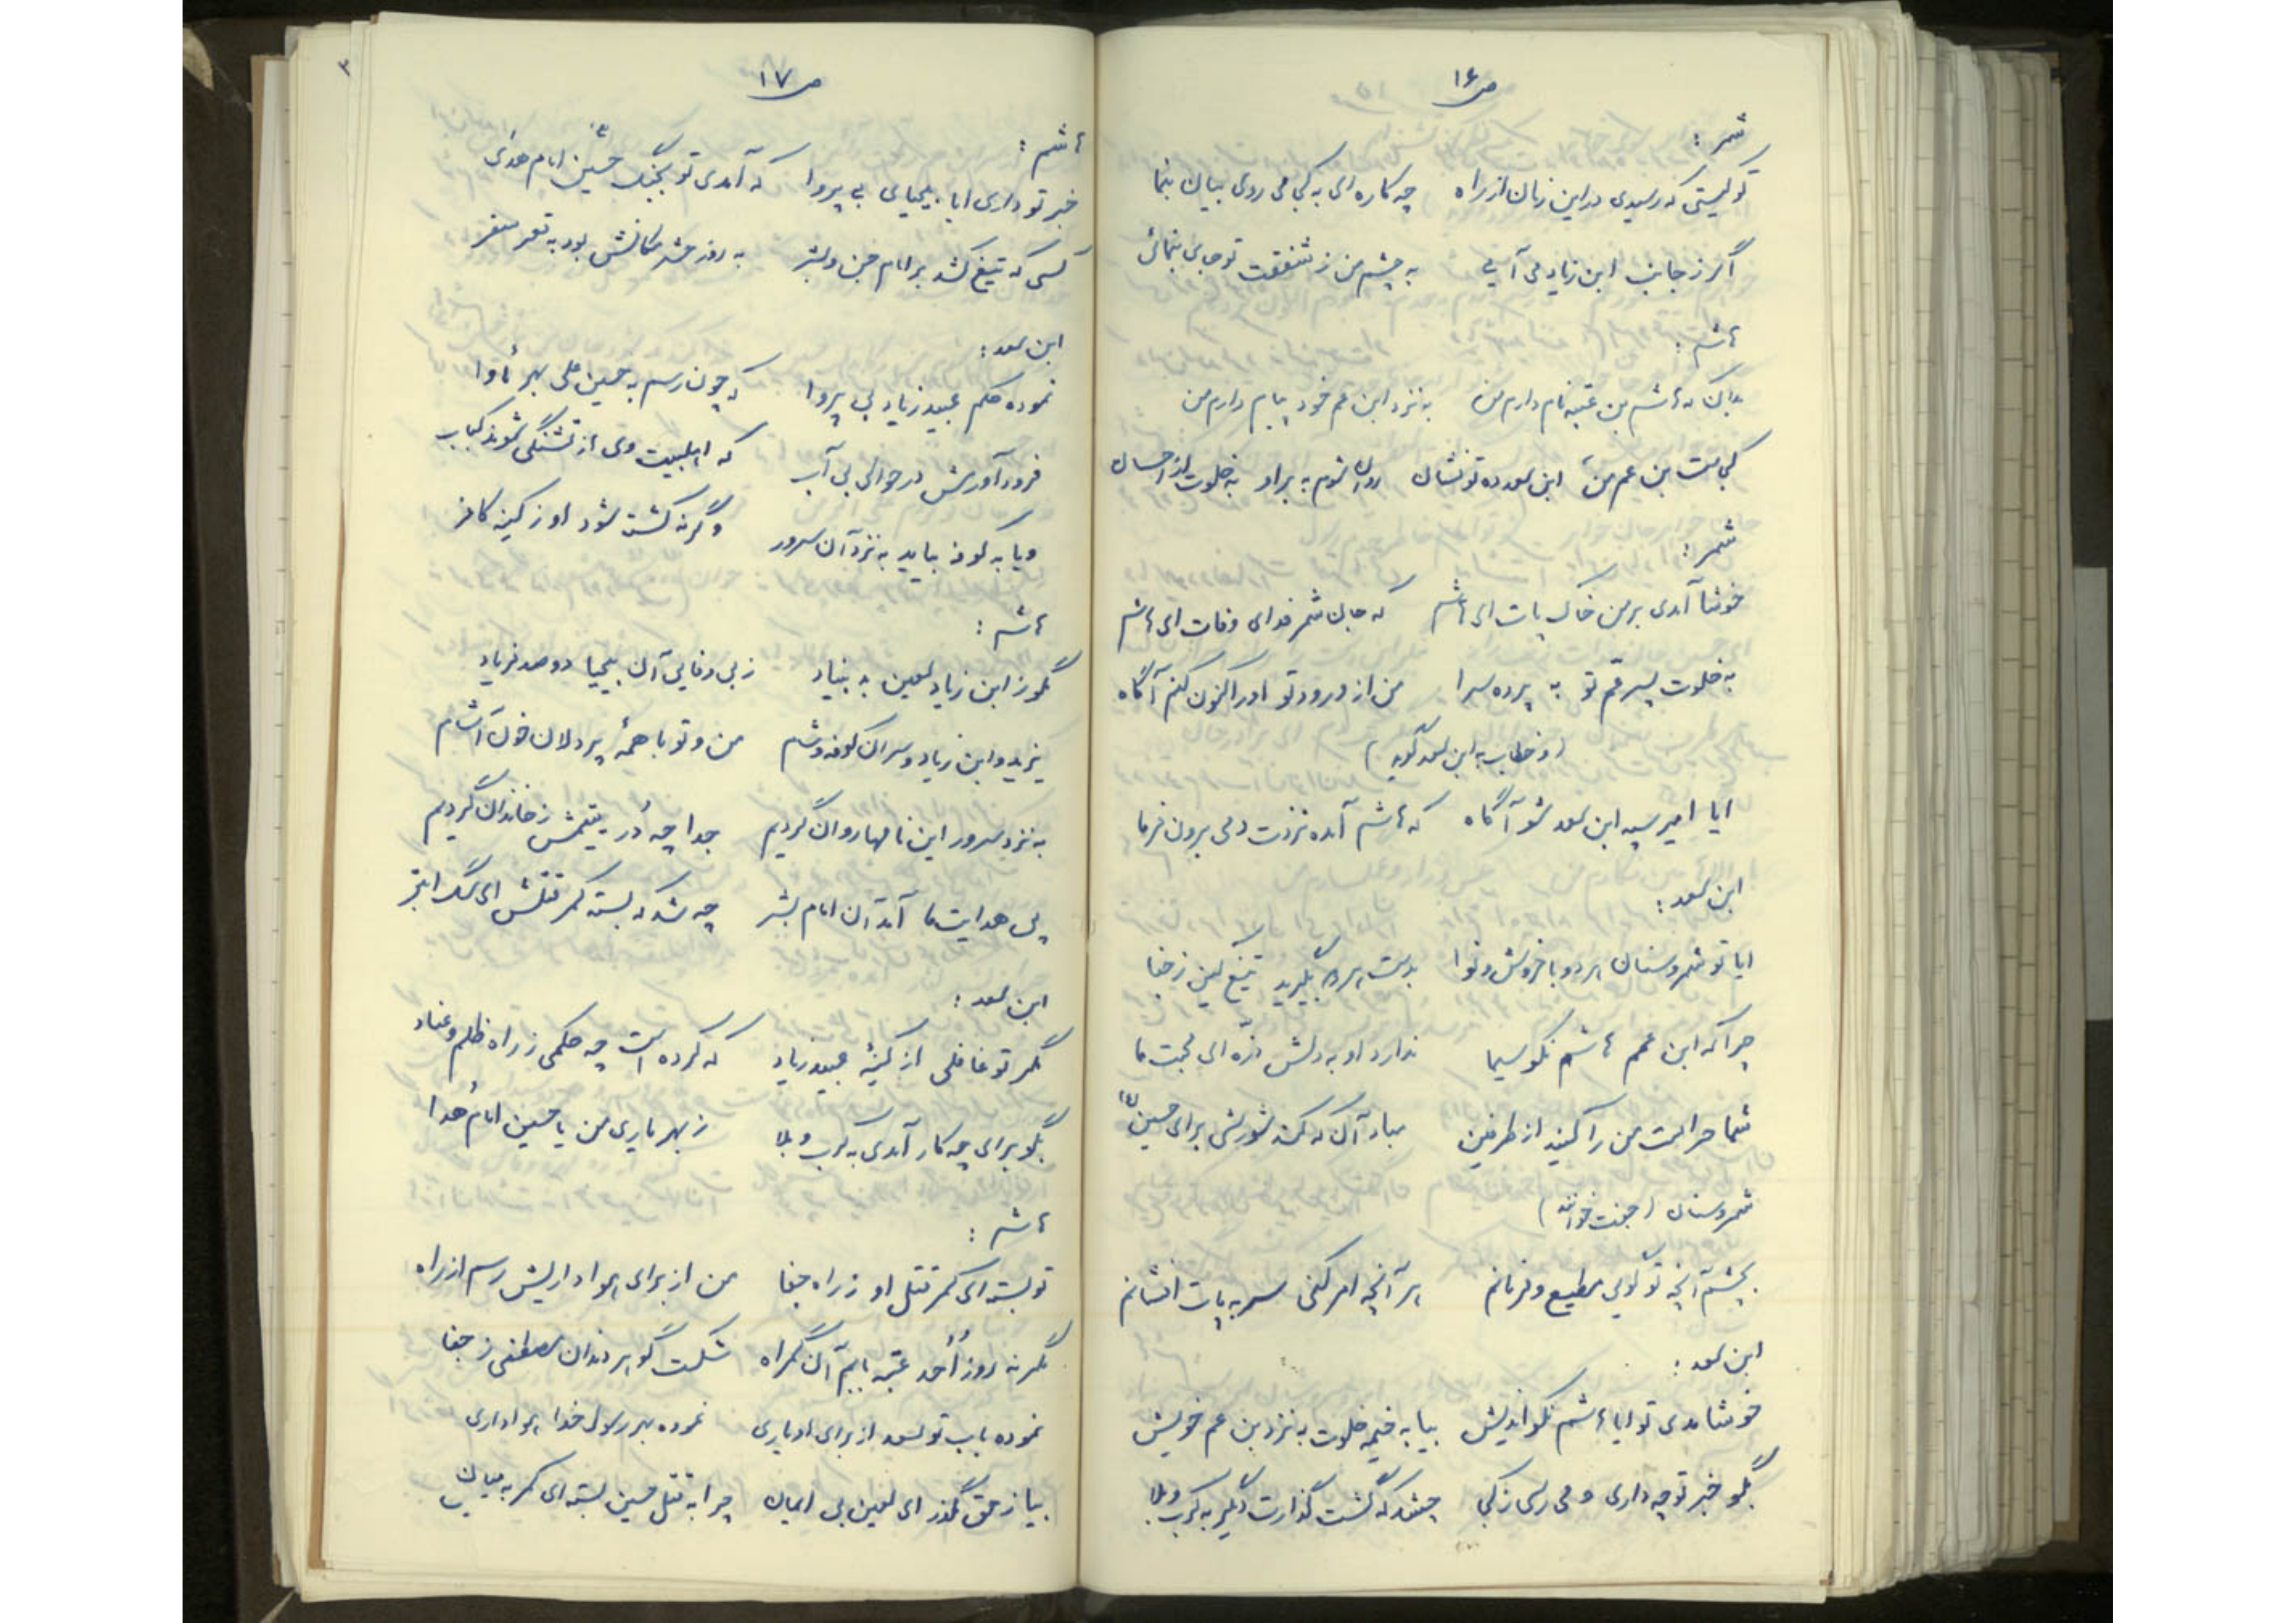 ص ۱۶
شمر :
تو کیستی که رسیدی در این زمان از راه چه کاره ای به کجا می روی بیان بنما
اگر ز جانب ابن زیاد می آیی به چشم من ز شفقت تو جای بنمائی
هاشم :
بدان که هاشم بن عتبه نام دارم من به نزد ابن عم خود پیام دارم من
کجاست بن عم من ابن سعد ده تو نشان روان شوم به بر او به خلوت از احسان
شمر :
خوشا آمدی بر من خاک پات ای هاشم که جان شمر فدای وفات ای هاشم
به خلوت پسر عم تو به پرده سرا من از ورود تو او را کنون کنم آگاه
(و خطاب به ابن سعد گوید)
ایا امیر سپه ابن سعد شو آگاه که هاشم آمده نزدت دمی برون فرما
ابن سعد :
ایا تو شمر و سنان هر دو با خروش و نوا بدست هر دو بگیرید تیغ کین ز جفا
چرا که ابن عمم هاشم نکو سیما ندارد او به دلش ذره ای محبت ما
شما حراست من را کنید از طرفین مباد آن که کند شورشی برای حسین ع
شمر و سنان (جفت خوانند)
بچشم آنچه تو گویی مطیع و فرمانم هر آنچه امر کنی سر به پات افشانم
ابن سعد :
خوشامدی تو ایا هاشم نکو اندیش بیا به خیمه خلوت به نزد بن عم خویش
بگو خبر تو چه داری و می رسی ز کجا چه شد که گشت گذارت دگر به کرب و بلا
ص ۱۷
هاشم :
خبر تو داری ایا بیحیای بی پروا که آمدی تو بجنگ حسین ع امام هدی
کسی که تیغ کشد بر امام جن و بشر به روز حشر مکانش بود به قعر سقر
ابن سعد :
نموده حکم عبید زیاد بی پروا که چون رسم به حسین علی بهر مأوا
فرود آورش در حوالی بی آب که اهلبیت وی از تشنگی شوند کباب
ویا به کوفه بیاید به نزد آن سرور وگرنه کشته شود او ز کینه کافر
هاشم :
مگو ز ابن زیاد لعین به بنیاد ز بی وفایی آن بیحیا دو صد فریاد
یزید و ابن زیاد و سران کوفه و شام من و تو با همه پر دلان خون آشام
به نزد سرور این نامه ها روان کردیم جدا چه دُر یتیمش ز خاندان کردیم
پی هدایت ما آمد آن امام بشر چه شد که بسته کمر قتلش ای سگ ابتر
ابن سعد :
مگر تو غافلی از کینه عبید زیاد که کرده است چه حکمی ز راه ظلم و عناد
بگو برای چه کار آمدی به کرب و بلا ز بهر یاری من یا حسین امام هُدا
هاشم :
تو بسته ای کمر قتل او ز راه جفا من از برای هواداریش رسم از راه
مگر نه روز اُحد عتبه بابم آن گمراه شکست گوهر دندان مصطفی ز جفا
نموده باب تو سعد از برای او یاری نموده بهر رسول خدا هواداری
بیا ز حق گذر ای لعین بی ایمان چرا به قتل حسین بسته ای کمر به میان